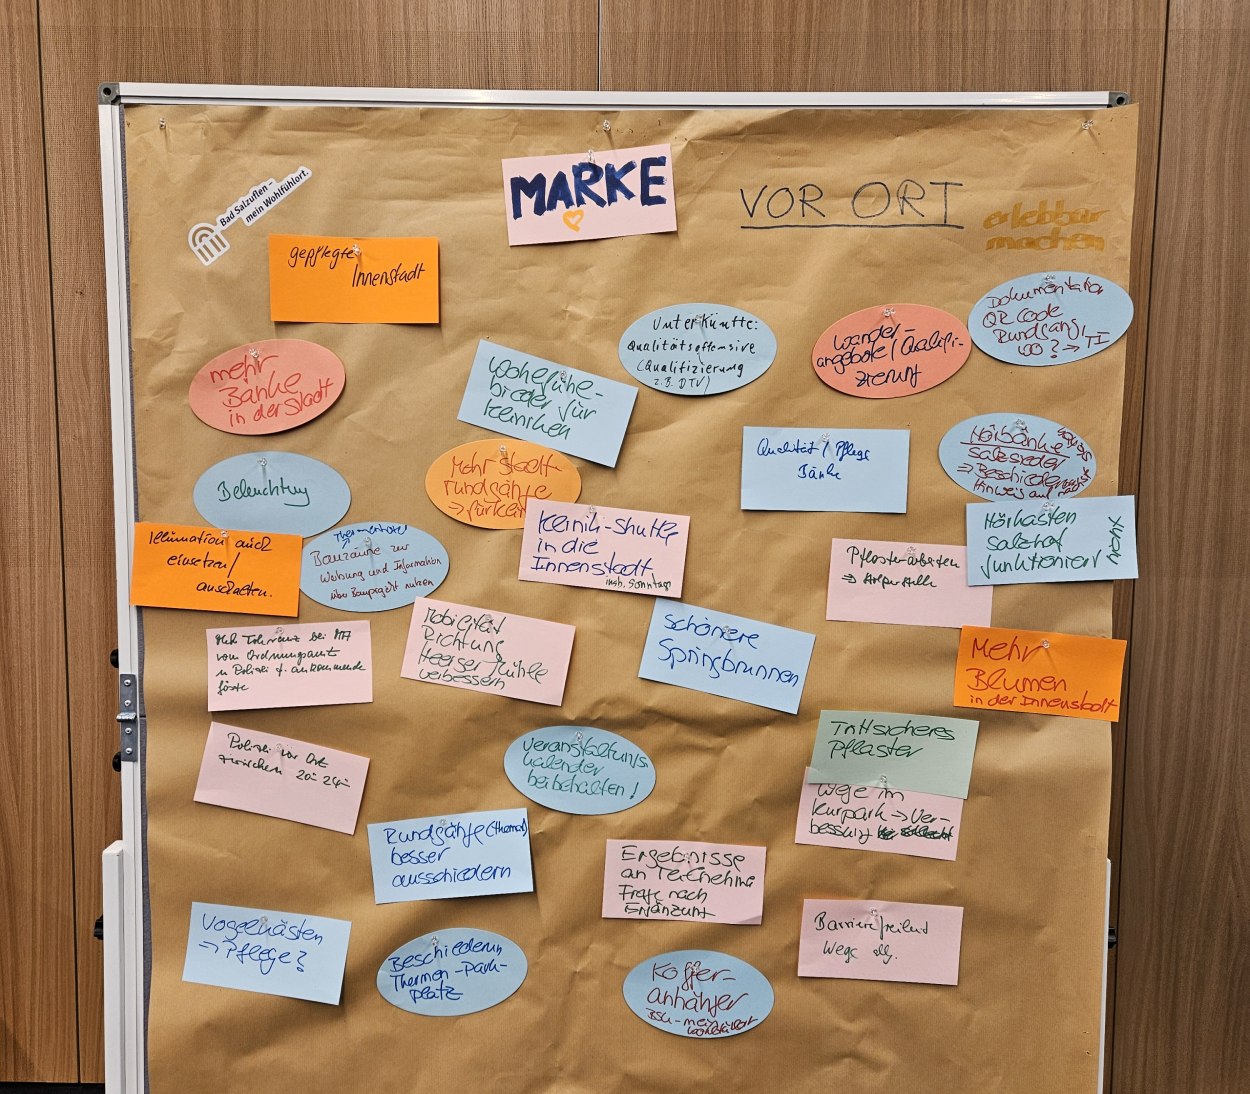 Bad Salzuflen –
mein Wohlfühlort.
MARKE
VOR ORT
erlebbar
machen
gepflegte
Innenstadt
mehr
Bänke
in der Stadt
Unterkünfte:
Qualitätsoffensive
(Qualifizierung
z.B. DTV)
Wander-
angebote / Qualifi-
zierung
Dokumentation
QR Code
Rundgang
wo? →
für
Kliniken
Beleuchtung
Mehr Stadt-
rundgänge
Qualität / Pflege
Bänke
Hörbänke
Salzsieder
⇒ Beschilderung
Hinweis auf
Hörkasten
Salzhof
funktioniert
nicht
Illumination auch
einsetzen /
ausschalten.
Thermenhotel
Bauzäune zur
Werbung und Information
über Bauprojekt nutzen
Klinik-Shuttle
in die
Innenstadt
insb. Sonntags
Pflasterarbeiten
⇒ Stolperstelle
Toleranz bei
vom Ordnungsamt
u Polizei f. ankommende
Gäste
Mobilität
Richtung
Heerser Mühle
verbessern
schönere
Springbrunnen
Mehr
Blumen
in der Innenstadt
Polizei vor Ort
zwischen 20 - 24
Veranstaltungs
kalender
beibehalten!
Trittsicheres
Pflaster
Wege im
Kurpark → Ver-
besserung
Rundgänge (Themen)
besser
ausschildern
Ergebnisse
an Teilnehmer
Frage nach
Ergänzung
Vogelkästen
→ Pflege?
Beschilderung
Thermen-Park-
platz
Koffer-
anhänger
mein
Wohlfühlort
Barrierefreiheit
Wege allg.